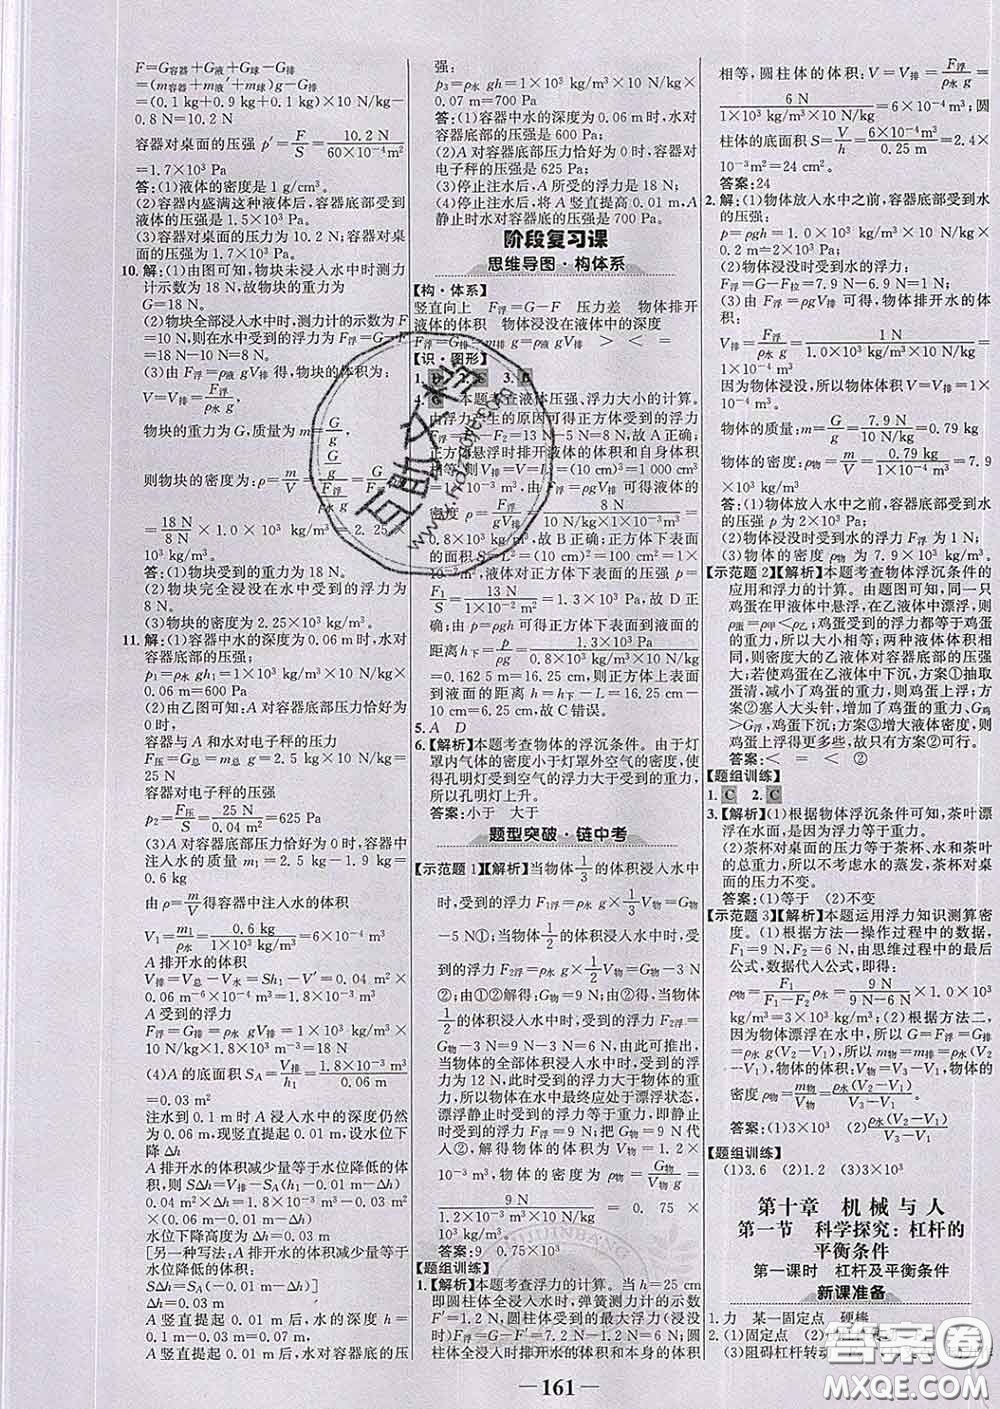 F=G容器+G液+G球-G排
=(m容器+m液′+m球)g-G排
=(0.1 kg+0.9 kg+0.1 kg)×10 N/kg-
0.8 N=10.2 N
容器对桌面的压强 p′=F/S=10.2 N/60×10⁻⁴m²
=1.7×10³ Pa
答:(1)液体的密度是 1 g/cm³。
(2)容器内盛满这种液体后,容器底部受到
液体的压强是 1.5×10³ Pa。
(3)容器对桌面的压力为 10.2 N;容器对桌
面的压强为 1.7×10³ Pa。
10. 解:(1)由图可知,物块未浸入水中时测力
计示数为 18 N,故物块的重力为
G=18 N。
(2)物块全部浸入水中时,测力计的示数为 F
=10 N,则在水中受到的浮力为 F浮=G-F
=18 N-10 N=8 N。
(3)由 F浮=ρ水 gV排 得物块的体积为:
V=V排=F浮/ρ水 g
物块的重力为 G,质量为 m=G/g
则物块的密度为:ρ=m/V=(G/g)/(F浮/ρ水 g)=G/F浮 ρ水
=18 N/8 N×1.0×10³ kg/m³=2.25×
10³ kg/m³。
答:(1)物块受到的重力为 18 N。
(2)物块完全浸没在水中受到的浮力为
8 N。
(3)物块的密度为 2.25×10³ kg/m³。
11. 解:(1)容器中水的深度为 0.06 m 时,水对
容器底部的压强:
p₁=ρ水 gh₁=1×10³ kg/m³×10 N/kg×
0.06 m=600 Pa
(2)由乙图可知,A 对容器底部压力恰好为
0 时,
容器与 A 和水对电子秤的压力
F压=G总=m总 g=2.5 kg×10 N/kg=25 N
容器对电子秤的压强
p₂=F压/S=25 N/0.04 m²=625 Pa
(3)A 对容器底部压力恰好为 0 时,容器
中注入水的质量 m₁=2.5 kg-1.9 kg=
0.6 kg
由 ρ=m/V得容器中注入水的体积
V₁=m₁/ρ水=0.6 kg/1×10³ kg/m³=6×10⁻⁴ m³
A 排开水的体积
V排=V总-V水=Sh₁-V′=0.04 m²×
0.06 m-6×10⁻⁴ m³=1.8×10⁻³ m³
A 受到的浮力
F浮=G排=ρ水 gV排=1×10³ kg/m³×
10 N/kg×1.8×10⁻³ m³=18 N
(4)A 的底面积 S_A=V排/h₁=1.8×10⁻³ m³/0.06 m
=0.03 m²
注水到 0.1 m 时 A 浸入水中的深度仍然
为 0.06 m,现竖直提起 0.01 m,设水位下
降 Δh
A 排开水的体积减少量等于水位降低的体
积,则 SΔh=V排-S_A(h₁-0.01 m-Δh)
0.04 m²×Δh=1.8×10⁻³ m³-0.03 m²×
(0.06 m-0.01 m-Δh)
水位下降高度为 Δh=0.03 m
[另一种写法:A 排开水的体积减少量等于
水位降低的体积:
SΔh=S_AΔh+S_A×0.01 m
Δh=0.03 m]
A 竖直提起 0.01 m 后,水的深度 h=
0.1 m-0.03 m=0.07 m
A 竖直提起 0.01 m,水对容器底部的压
强:
p₃=ρ水 gh=1×10³ kg/m³×10 N/kg×
0.07 m=700 Pa
答:(1)容器中水的深度为 0.06 m 时,水对
容器底部的压强是 600 Pa;
(2)A 对容器底部压力恰好为 0 时,容器对
电子秤的压强是 625 Pa;
(3)停止注水后,A 所受的浮力是 18 N;
(4)停止注水后,将 A 竖直提高 0.01 m,A
静止时水对容器底部的压强是 700 Pa。
阶段复习课
思维导图·构体系
【构·体系】
竖直向上 F浮=G-F 压力差 物体排开
液体的体积 物体浸没在液体中的深度
F浮=G排=m排 g=ρ液 gV排 > < =
【识·图形】
4. 本题考查液体压强、浮力大小的计算。
由浮力产生的原因可得正方体受到的浮力
F浮=F₁-F₂=13 N-5 N=8 N,故 A 正确;
正方体悬浮时排开液体的体积和自身体积
相等,则 V排=V=L³=(10 cm)³=1 000 cm³
=1×10⁻³ m³,由 F浮=ρgV排 可得,液体的
密度 ρ=F浮/gV排=8 N/10 N/kg×1×10⁻³ m³=
0.8×10³ kg/m³,故 B 正确;正方体下表面
的面积 S=L²=(10 cm)²=100 cm²=1×
10⁻² m²,液体对正方体下表面的压强 p=
F₁/S=13 N/1×10⁻² m²=1.3×10³ Pa,故 D 正
确;由 p=ρgh 可得,正方体下表面到液面
距离 h下=p/ρg=1.3×10³ Pa/0.8×10³ kg/m³×10 N/kg=
0.162 5 m=16.25 cm,则正方体上表面到
液面的距离 h=h下-L=16.25 cm-
10 cm=6.25 cm,故 C 错误。
5. A D
6.【解析】本题考查物体的浮沉条件。由于灯
罩内气体的密度小于灯罩外空气的密度,
使得孔明灯受到空气的浮力大于重力,所
以孔明灯上升。
答案:小于 大于
题型突破·链中考
【示范题 1】【解析】当物体1/3的体积浸入水中
时,受到的浮力 F₁浮=ρ水 g×1/3V物=G物
-5 N①;当物体1/2的体积浸入水中时,受
到的浮力 F₂浮=ρ水 g×1/2V物=G物-3 N
②;由①②解得:G物=9 N;由②得,当物体
1/2的体积浸入水中时,受到的浮力 F₂浮=
G物-3 N=9 N-3 N=6 N,由此可推出,当
物体的全部体积浸入水中时,受到的浮力为
12 N,此时受到的浮力大于物体的重力,所以
物体静止时在水中最终应处于漂浮状态,
漂浮静止时受到的浮力等于重力,即静止
时受到的浮力 F浮=G物=9 N。把 G物=9 N 代
入②,解得物体的体积为 V物=1.2×
10⁻³ m³,物体的密度为 ρ物=G物/V物g=
9 N/1.2×10⁻³ m³×10 N/kg=0.75×
10³ kg/m³。
答案:9 0.75×10³
【题组训练】
1.【解析】本题考查浮力的计算。当 h=25 cm
即圆柱体全部浸入水时,弹簧测力计的示数
F′=1.2 N,圆柱体受到的最大浮力(浸没
时)F浮=G-F′=7.2 N-1.2 N=6 N;圆柱
体全部浸入水时,排开水的体积和本身的体积
相等,圆柱体的体积:V=V排=F浮/ρ水 g=
6 N/1×10³ kg/m³×10 N/kg=6×10⁻⁴ m³;圆
柱体的底面积 S=V/h=6×10⁻⁴ m³/0.25 m=2.4×
10⁻³m²=24 cm²。
答案:24
2. 解:(1)物体放入水中之前,容器底部受到水
的压强:
p=ρgh=1.0×10³ kg/m³×10 N/kg×
0.2 m=2×10³ Pa。
(2)物体浸没时受到水的浮力:
F浮=G-F拉=7.9 N-6.9 N=1 N;
(3)由 F浮=ρ水 gV排 可得,物体排开水的体
积:
V排=F浮/ρ水 g=1 N/1.0×10³ kg/m³×10 N/kg=
1×10⁻⁴ m³
因为物体浸没,所以物体体积:V物=V排=
1×10⁻⁴ m³
物体的质量:m=G/g=7.9 N/10 N/kg=0.79 kg
物体的密度:ρ物=m/V物=0.79 kg/1×10⁻⁴ m³=7.9
×10³ kg/m³。
答:(1)物体放入水中之前,容器底部受到水
的压强 p 为 2×10³ Pa;
(2)物体浸没时受到水的浮力 F浮 为 1 N;
(3)物体的密度 ρ物 为 7.9×10³ kg/m³。
【示范题 2】【解析】本题考查物体浮沉条件的
应用和浮力的计算。由题图可知,同一只
鸡蛋在甲液体中悬浮,在乙液体中漂浮,则
ρ蛋=ρ甲<ρ乙;鸡蛋受到的浮力都等于重
力,所以大小相等;两种液体液面相
同,则密度大的乙液体对容器底部的压强
大;若使鸡蛋在乙液体中下沉,方案①抽取
蛋清,减小了鸡蛋的重力,鸡蛋上浮;方
案②塞入大头针,增加了鸡蛋的重力,G
>F浮,鸡蛋下沉;方案③增大液体密度,
则鸡蛋上浮得更多些,故方案②可行。
答案:< = < ②
【题组训练】
1. C 2. C
3.【解析】(1)根据物体浮沉条件可知,茶叶漂
浮在水面,是因为浮力等于重力。
(2)茶杯对桌面的压力等于茶杯、水和茶叶
的总重力,所以不考虑水的蒸发,茶杯对桌
面的压力不变。
答案:(1)等于 (2)不变
【示范题 3】【解析】本题运用浮力知识测算密
度。(1)根据方法一操作过程中的数据,
F₁=9 N,F₂=6 N,由思维过程中的最后
公式,数据代入公式,即得:
ρ物=F₁/F₁-F₂ρ水=9 N/9 N-6 N×1.0×10³
kg/m³=3×10³ kg/m³;(2)根据方法二,
因为物体漂浮在水中,所以 G=F浮=G排=
ρ水 g(V₂-V₁),所以 m物=m排=ρ水(V₂
-V₁),物体的体积:V物=V₃-V₁,物体的
密度 ρ物=m物/V物=ρ水(V₂-V₁)/V₃-V₁。
答案:(1)3×10³ (2)ρ水(V₂-V₁)/V₃-V₁
【题组训练】
(1)3.6 (2)1.2 (3)3×10³
第十章 机械与人
第一节 科学探究:杠杆的
平衡条件
第一课时 杠杆及平衡条件
新课准备
1. 力 某一固定点 硬棒
2. (1)固定点 (2)
(3)阻碍杠杆转动
— 161 —
互助文档
www.
JIJINBANG
答案圈
MXQE.COM